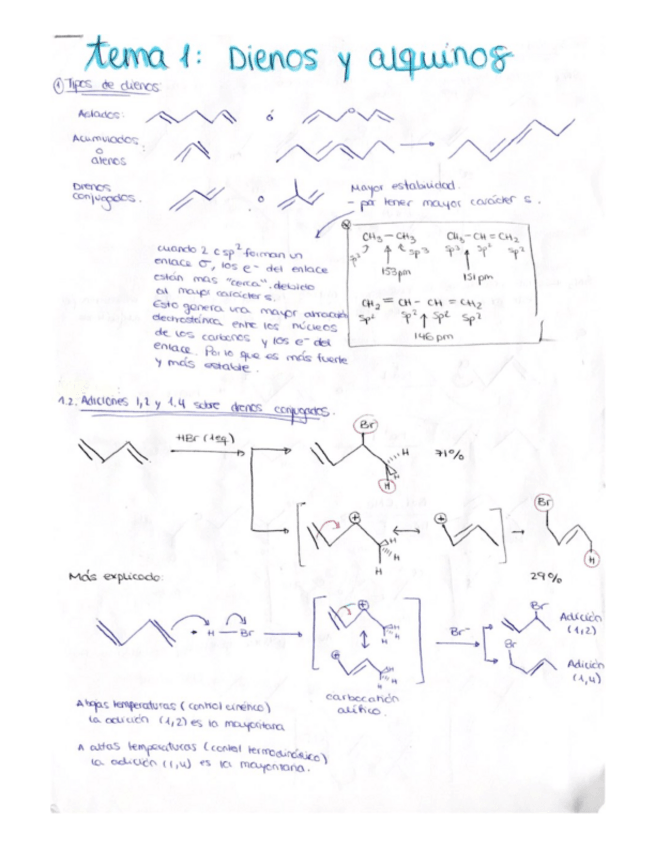 tema 1: Dienos y alquinos
① Tipos de dienos:
Aislados:
ó
Acumulados
o
alenos
:
Dienos
conjugados.
o
Mayor estabilidad.
- por tener mayor carácter s.
cuando 2 c sp² forman un
enlace σ, los e⁻ del enlace
están más "cerca", debido
al mayor carácter s.
Esto genera una mayor atracción
electrostática entre los núcleos
de los carbonos y los e⁻ del
enlace. Por lo que es más fuerte
y más estable.
CH₃ — CH₃
sp³ sp³
153pm
CH₃ - CH = CH₂
sp³ sp² sp²
151pm
CH₂ = CH - CH = CH₂
sp² sp² sp² sp²
146 pm
1.2. Adiciones 1,2 y 1,4 sobre dienos conjugados.
HBr (1eq)
Br
H
H
H
71%
⊕
H
H
H
⊕
Br
H
29%
Más explicado:
+ H — Br
⊕
H
H
H
⊕
H
H
H
carbocatión
alílico.
Br⁻
Br
Adición
(1,2)
Br
Adición
(1,4)
A bajas temperaturas (control cinético)
la adición (1,2) es la mayoritaria
A altas temperaturas (control termodinámico)
la adición (1,4) es la mayoritaria.